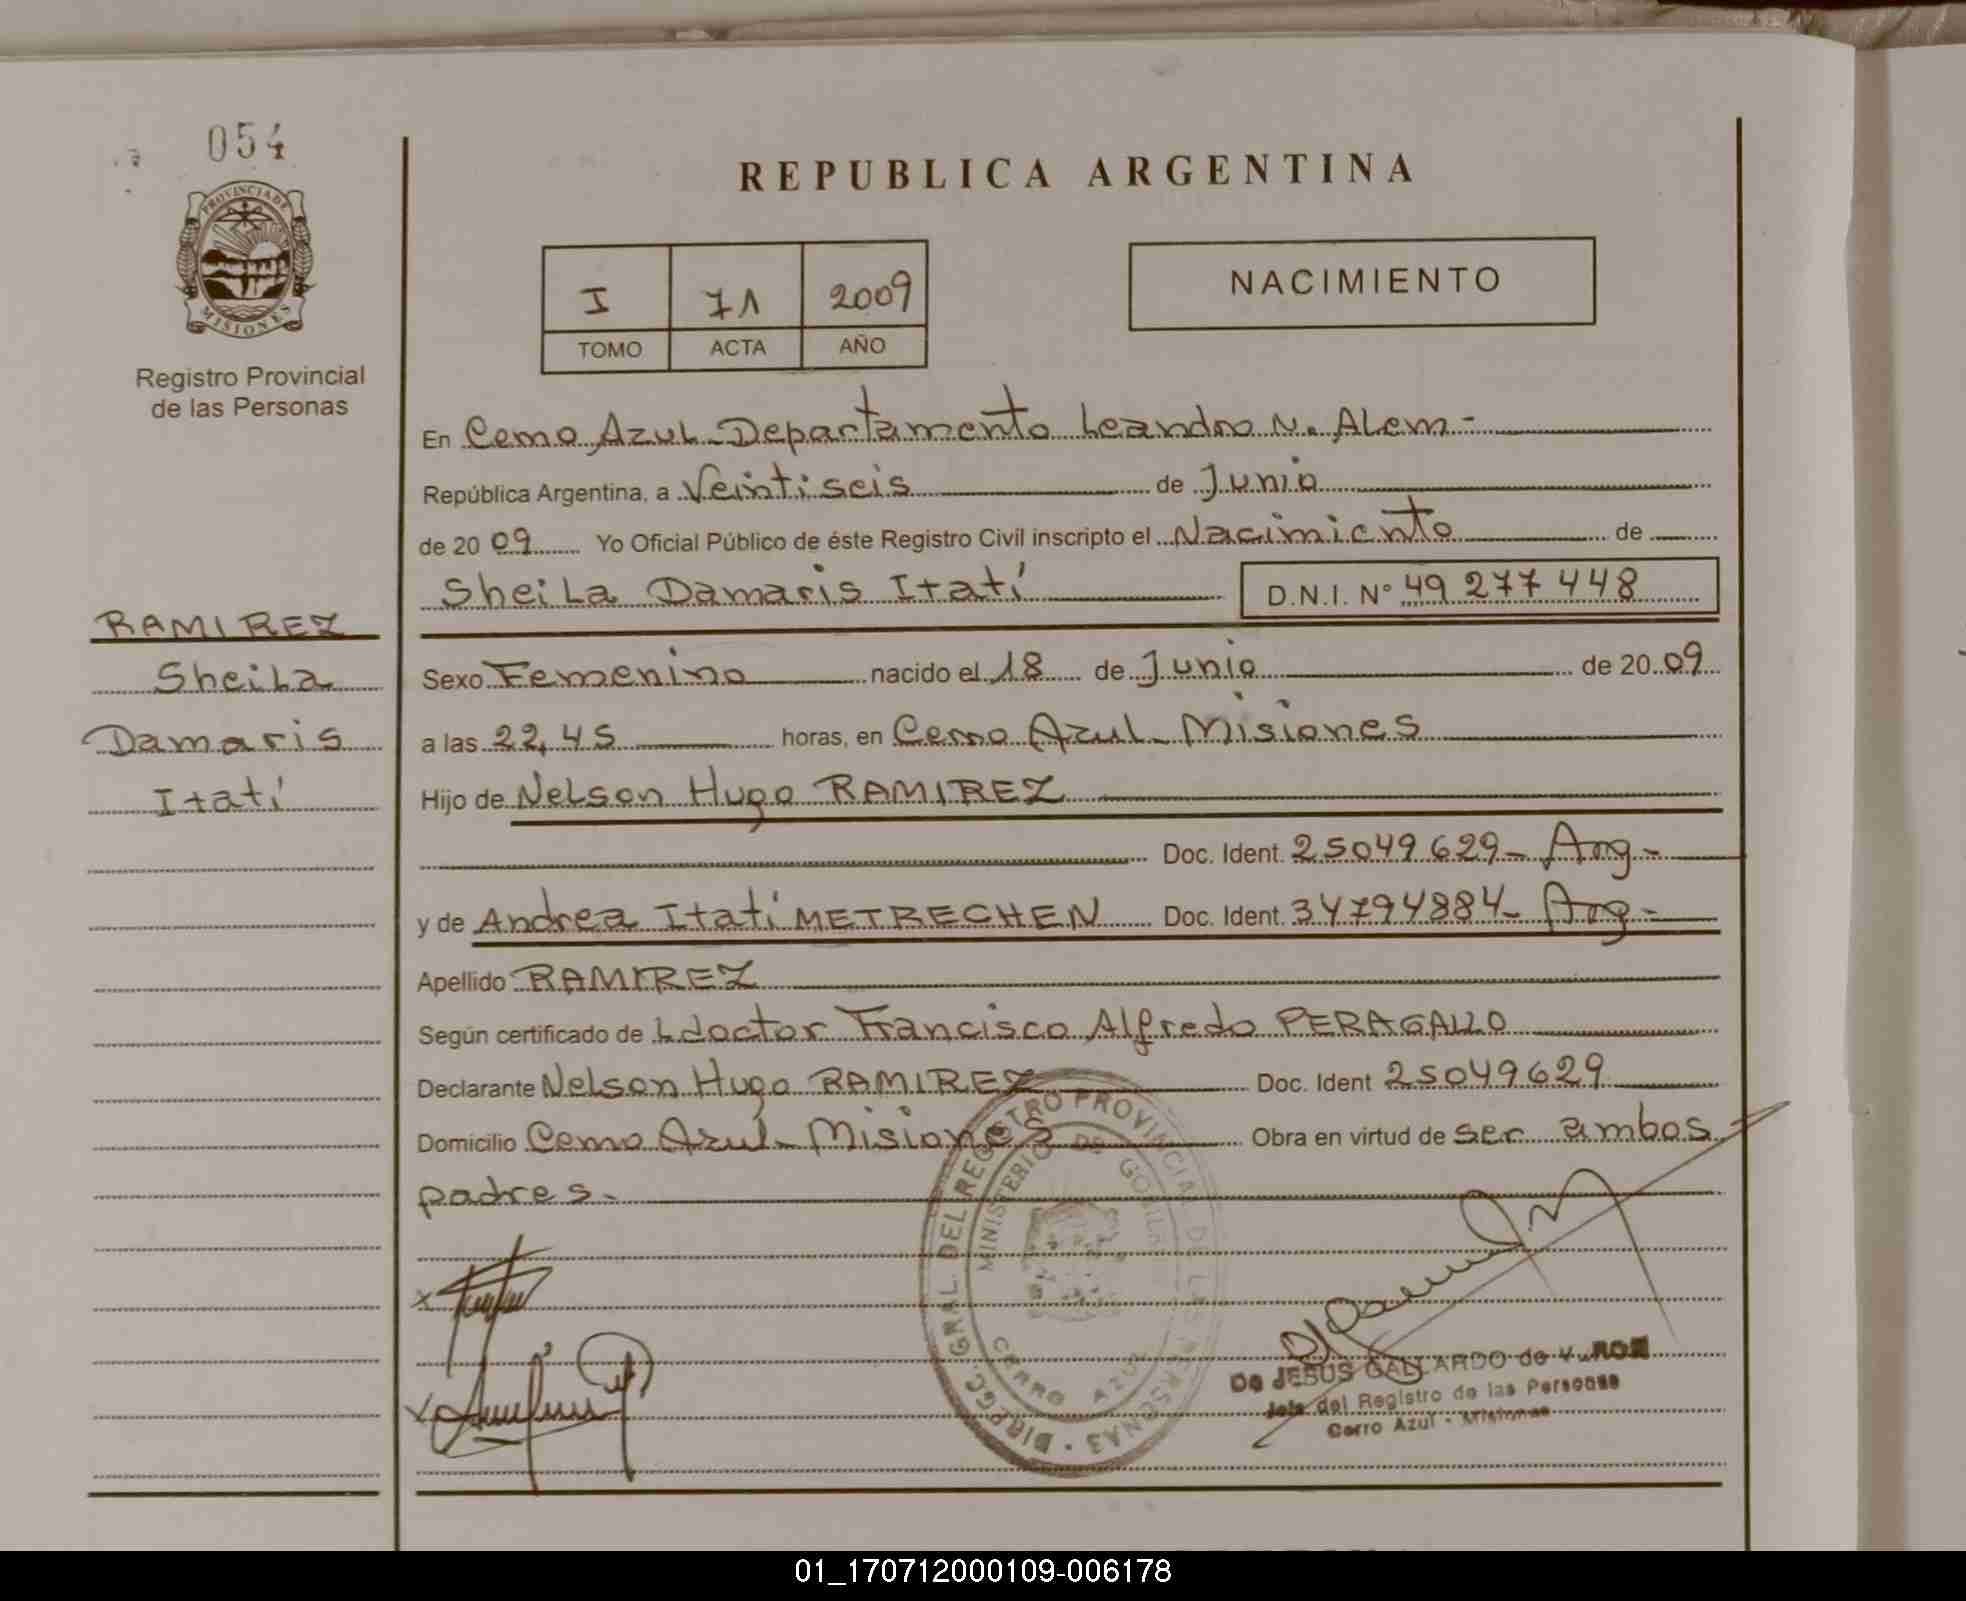 054
PROVINCIA DE
MISIONES
Registro Provincial
de las Personas
RAMIREZ
Sheila
Damaris
Itatí
REPUBLICA ARGENTINA
I 71 2009
TOMO ACTA AÑO
NACIMIENTO
En Cerro Azul - Departamento Leandro N. Alem -
República Argentina, a Veintiseis de Junio
de 20 09 Yo Oficial Público de éste Registro Civil inscripto el Nacimiento de
Sheila Damaris Itatí D.N.I. N° 49 277 448
Sexo Femenino nacido el 18 de Junio de 20 09
a las 22,45 horas, en Cerro Azul - Misiones
Hijo de Nelson Hugo RAMIREZ
Doc. Ident. 25049629 - Arg -
y de Andrea Itatí METRECHEN Doc. Ident. 34794884 - Arg -
Apellido RAMIREZ
Según certificado de L doctor Francisco Alfredo PERAGALLO
Declarante Nelson Hugo RAMIREZ Doc. Ident 25049629
Domicilio Cerro Azul - Misiones Obra en virtud de ser ambos
padres -
DIREC. GRAL. DEL REGISTRO PROVINCIAL DE LAS PERSONAS
MINISTERIO DE GOBIER
CERRO AZUL
De JESUS GALLARDO de
Jefe del Registro de las Personas
Cerro Azul - Misiones
01_170712000109-006178